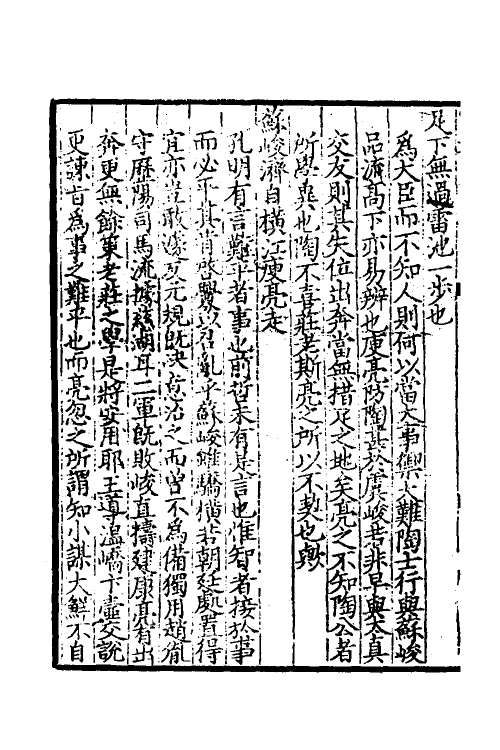 足下無過雷池一步也
為大臣而不知人則何以當大事禦大難陶士行與蘇峻
品流高下亦易辨也庾亮防陶甚於厲峻若非早與太真
交友則其失位出奔當無措足之地矣亮之不知陶公者
所學異也陶不喜莊老斯亮之所以不契也歟
蘇峻濟自橫江庾亮走
孔明有言難平者事也前哲未有是言也惟智者接於事
而必平其肯啓釁以召亂乎蘇峻雖驕橫若朝廷處置得
宜亦豈敢遽反元規既決意治之而曾不為備獨用趙胤
守歷陽司馬流據慈湖耳二軍既敗峻直擣建康亮宵出
奔更無餘策老莊之學是將安用耶王導温嶠卞壼交說
更諫皆為事之難平也而亮忽之所謂知小謀大鮮不自